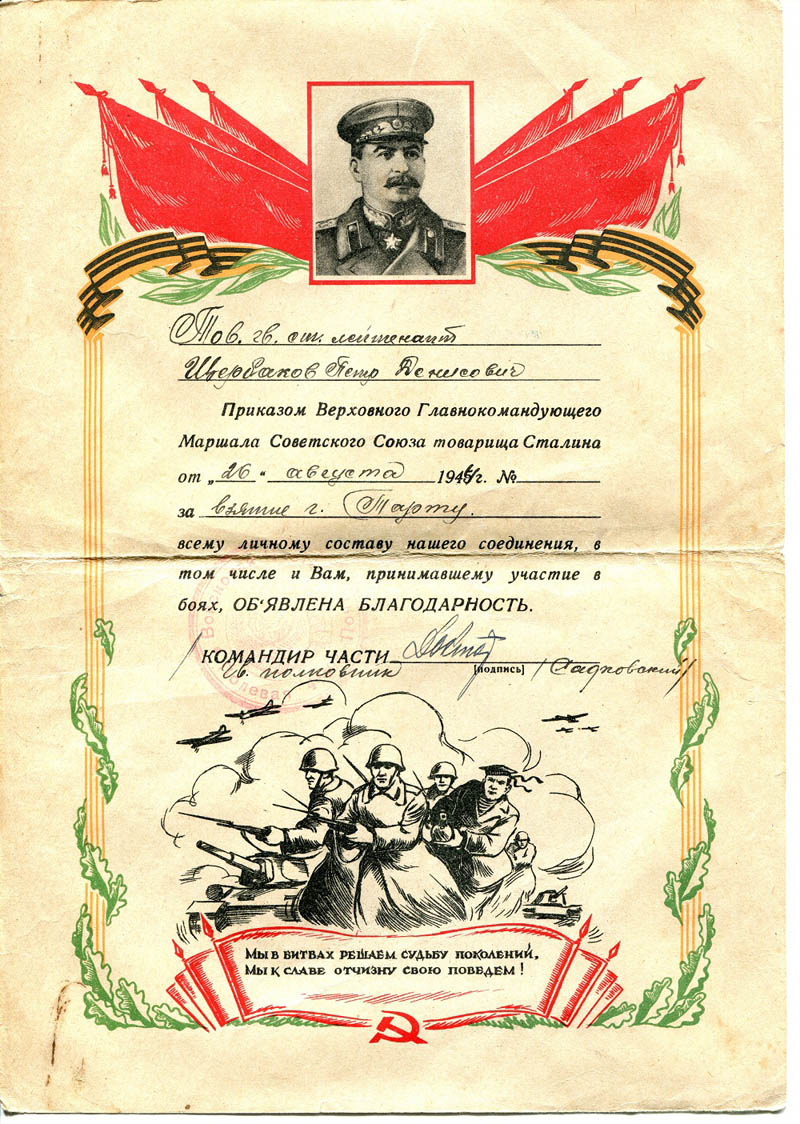 Тов. гв. ст. лейтенант
Щербаков Петр Денисович
Приказом Верховного Главнокомандующего
Маршала Советского Союза товарища Сталина
от „26“ августа 1944 г. №
за взятие г. Тарту.
всему личному составу нашего соединения, в
том числе и Вам, принимавшему участие в
боях, ОБ‘ЯВЛЕНА БЛАГОДАРНОСТЬ.
КОМАНДИР ЧАСТИ
[подпись]
Гв. полковник /Садковский/
МЫ В БИТВАХ РЕШАЕМ СУДЬБУ ПОКОЛЕНИЙ,
МЫ К СЛАВЕ ОТЧИЗНУ СВОЮ ПОВЕДЕМ!